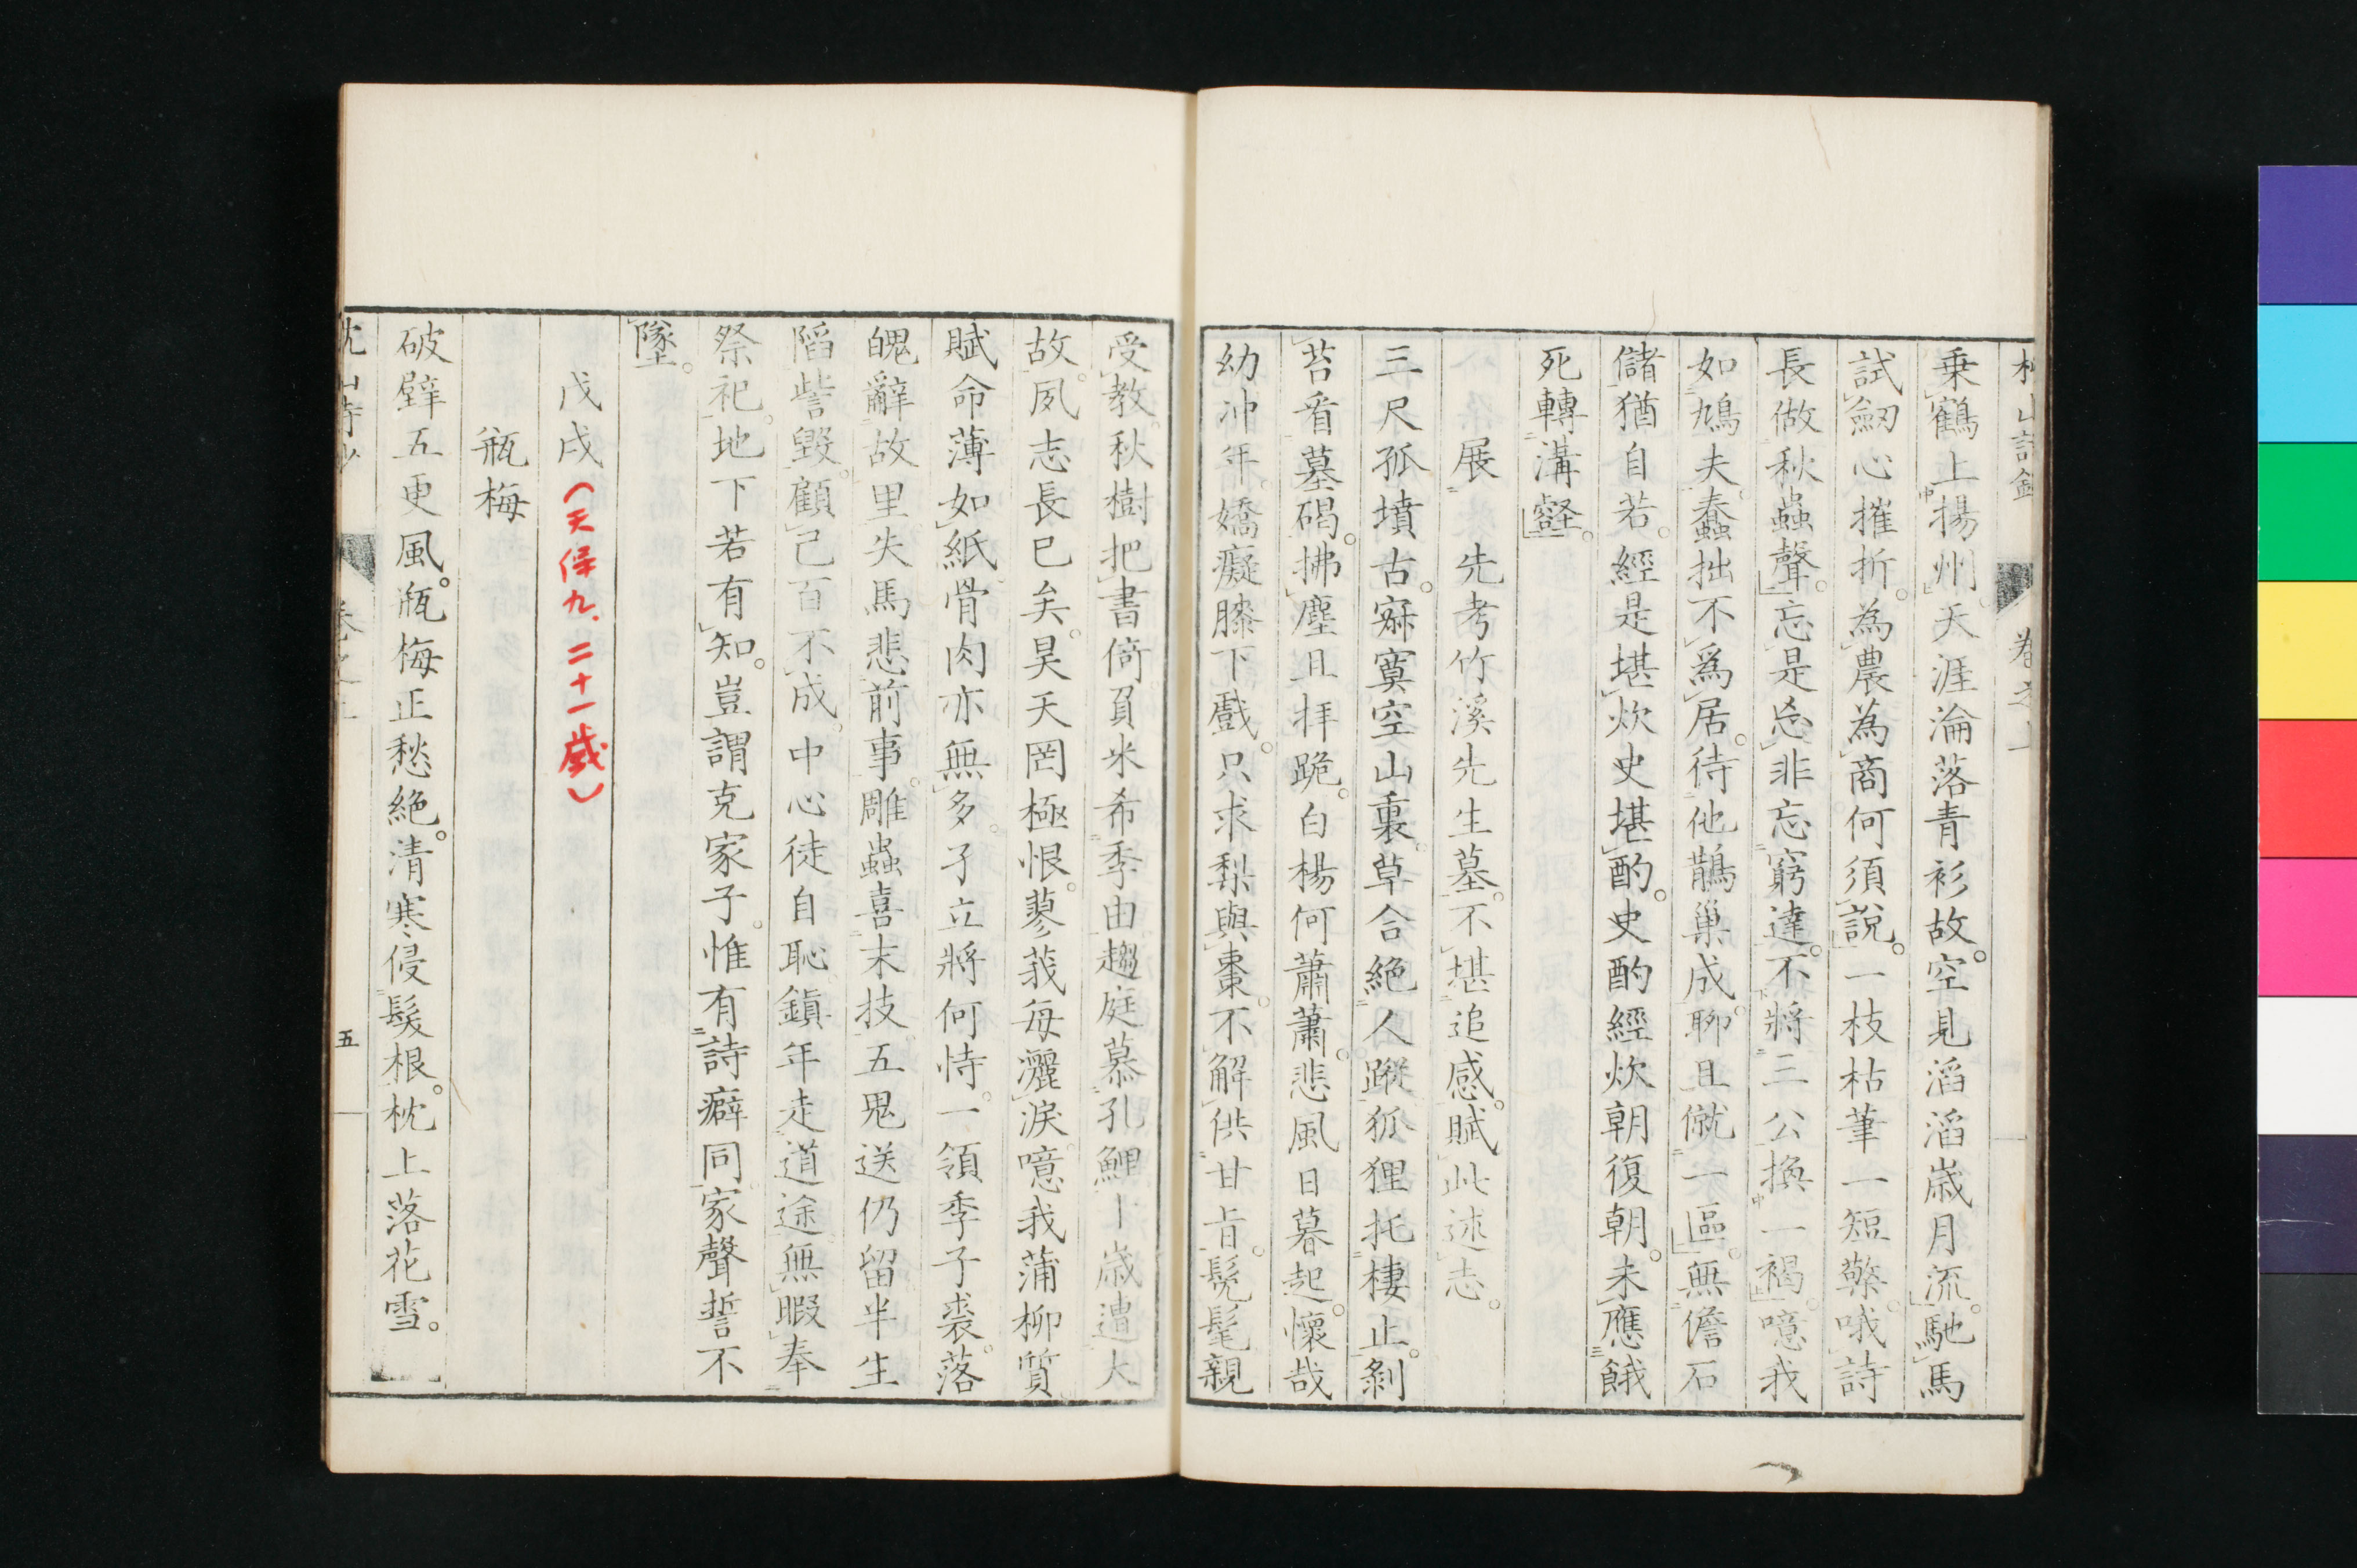 乗鶴上揚州。天涯淪落青衫故。空見滔滔歳月流。馳馬
試劒心摧折。為農為商何須説。一枝枯筆一短檠。哦詩
長做秋蟲聲。忘是忘非忘窮達。不將三公換一褐。噫我
如鳩夫。蠢拙不爲居。待他鵲巢成。聊且僦一區。無儋石
儲猶自若。經是堪炊史堪酌。史酌經炊朝復朝。未應餓
死轉溝壑。
展先考竹溪先生墓。不堪追感。賦此述志。
三尺孤墳古。寂寞空山裏。草合絶人蹤。狐狸托棲止。剝
苔看墓碣。拂塵且拝跪。白楊何蕭蕭。悲風日暮起。懷哉
幼冲年。嬌癡膝下戲。只求梨與棗。不解供甘旨。髡髦親
受教。秋樹把書倚。負米希季由。趨庭慕孔鯉。十歳遭大
故。夙志長已矣。昊天罔極恨。蓼莪毎灑淚。噫我蒲柳質。
賦命薄如紙。骨肉亦無多。孑立將何恃。一領季子裘。落
魄辭故里。失馬悲前事。雕蟲喜末技。五鬼送仍留。半生
謟訾毀。顧己百不成。中心徒自恥。鎮年走道途。無暇奉
祭祀。地下若有知。豈謂克家子。惟有詩癖同。家聲誓不
墜。
戊戌（天保九．二十一歳）
瓶梅
破壁五更風。瓶梅正愁絶。清寒侵髮根。枕上落花雪。
五